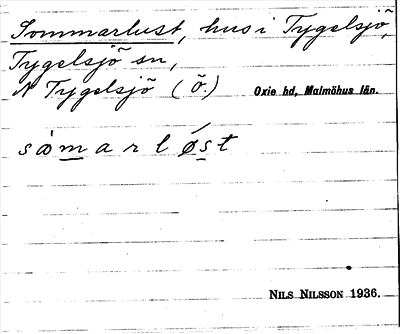 Sommarlust, hus i Tygelsjö,
Tygelsjö sn,
N Tygelsjö (ö.) Oxie hd, Malmöhus län.
såmarlǿst
NILS NILSSON 1936.